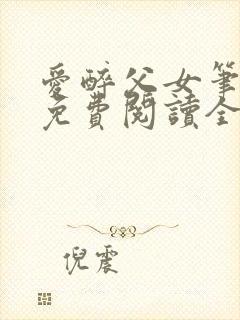 愛醉父女筆
免費閱讀全
倪震